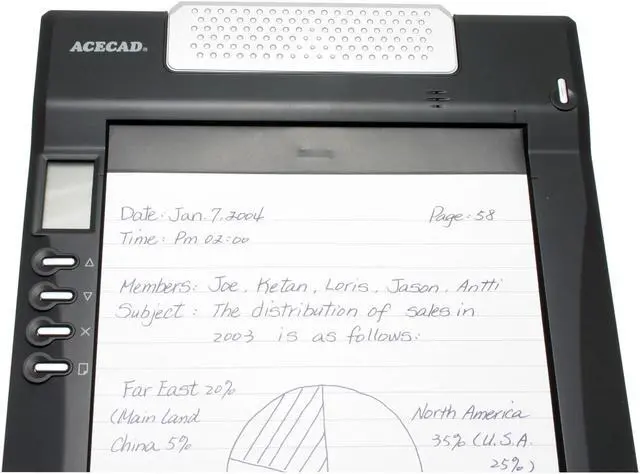 ACECAD®
Date: Jan. 7, 2004
Page: 58
Time: Pm 02:00
Members: Joe, Ketan, Loris, Jason, Antti
Subject: The distribution of sales in
2003 is as follows:
Far East 20%
(Main Land
China 5%
North America
35% (U.S.A.
25%)